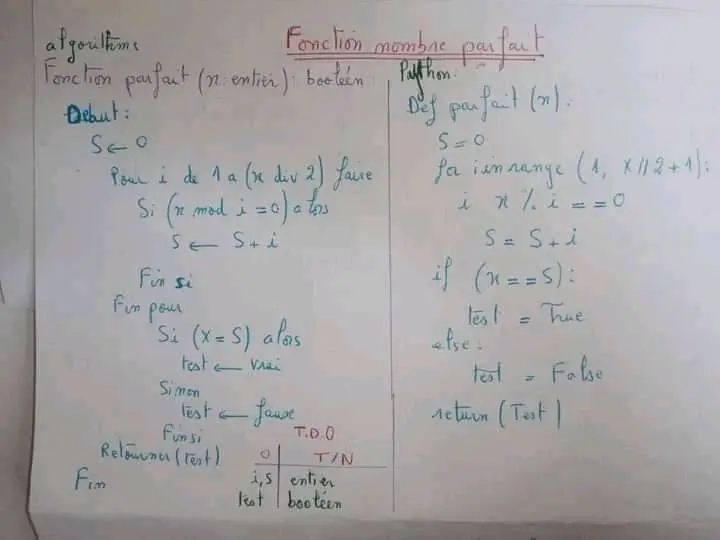 Fonction nombre parfait
algorithme
Fonction parfait (x: entier): booléen
Debut:
S ← 0
Pour i de 1 a (x div 2) faire
Si (x mod i = 0) alors
S ← S + i
Fin si
Fin pour
Si (X = S) alors
test ← vrai
Sinon
test ← fause
Finsi
Retourner (test)
Fin
T.D.O
O T/N
i,s entier
test booléen
Python:
Def parfait (x):
S = 0
for i in range (1, X//2+1):
i x % i == 0
S = S + i
if (x == S):
test = True
else:
test = False
return (Test)